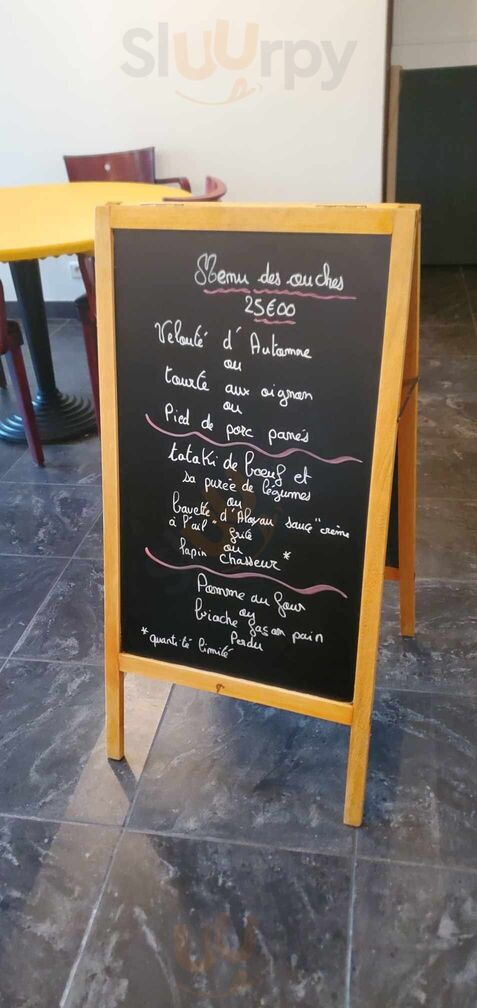 Sluurpy
Menu des ouches
25€00
Velouté d'Automne
ou
tourte aux oignon
ou
Pied de porc panés
tataki de boeuf et
sa purée de légumes
ou
bavette d'Aloyau sauce "crème
à l'ail" grillé
ou
lapin chasseur *
Pomme au four
ou
brioche façon pain
Perdu
* quantité limité